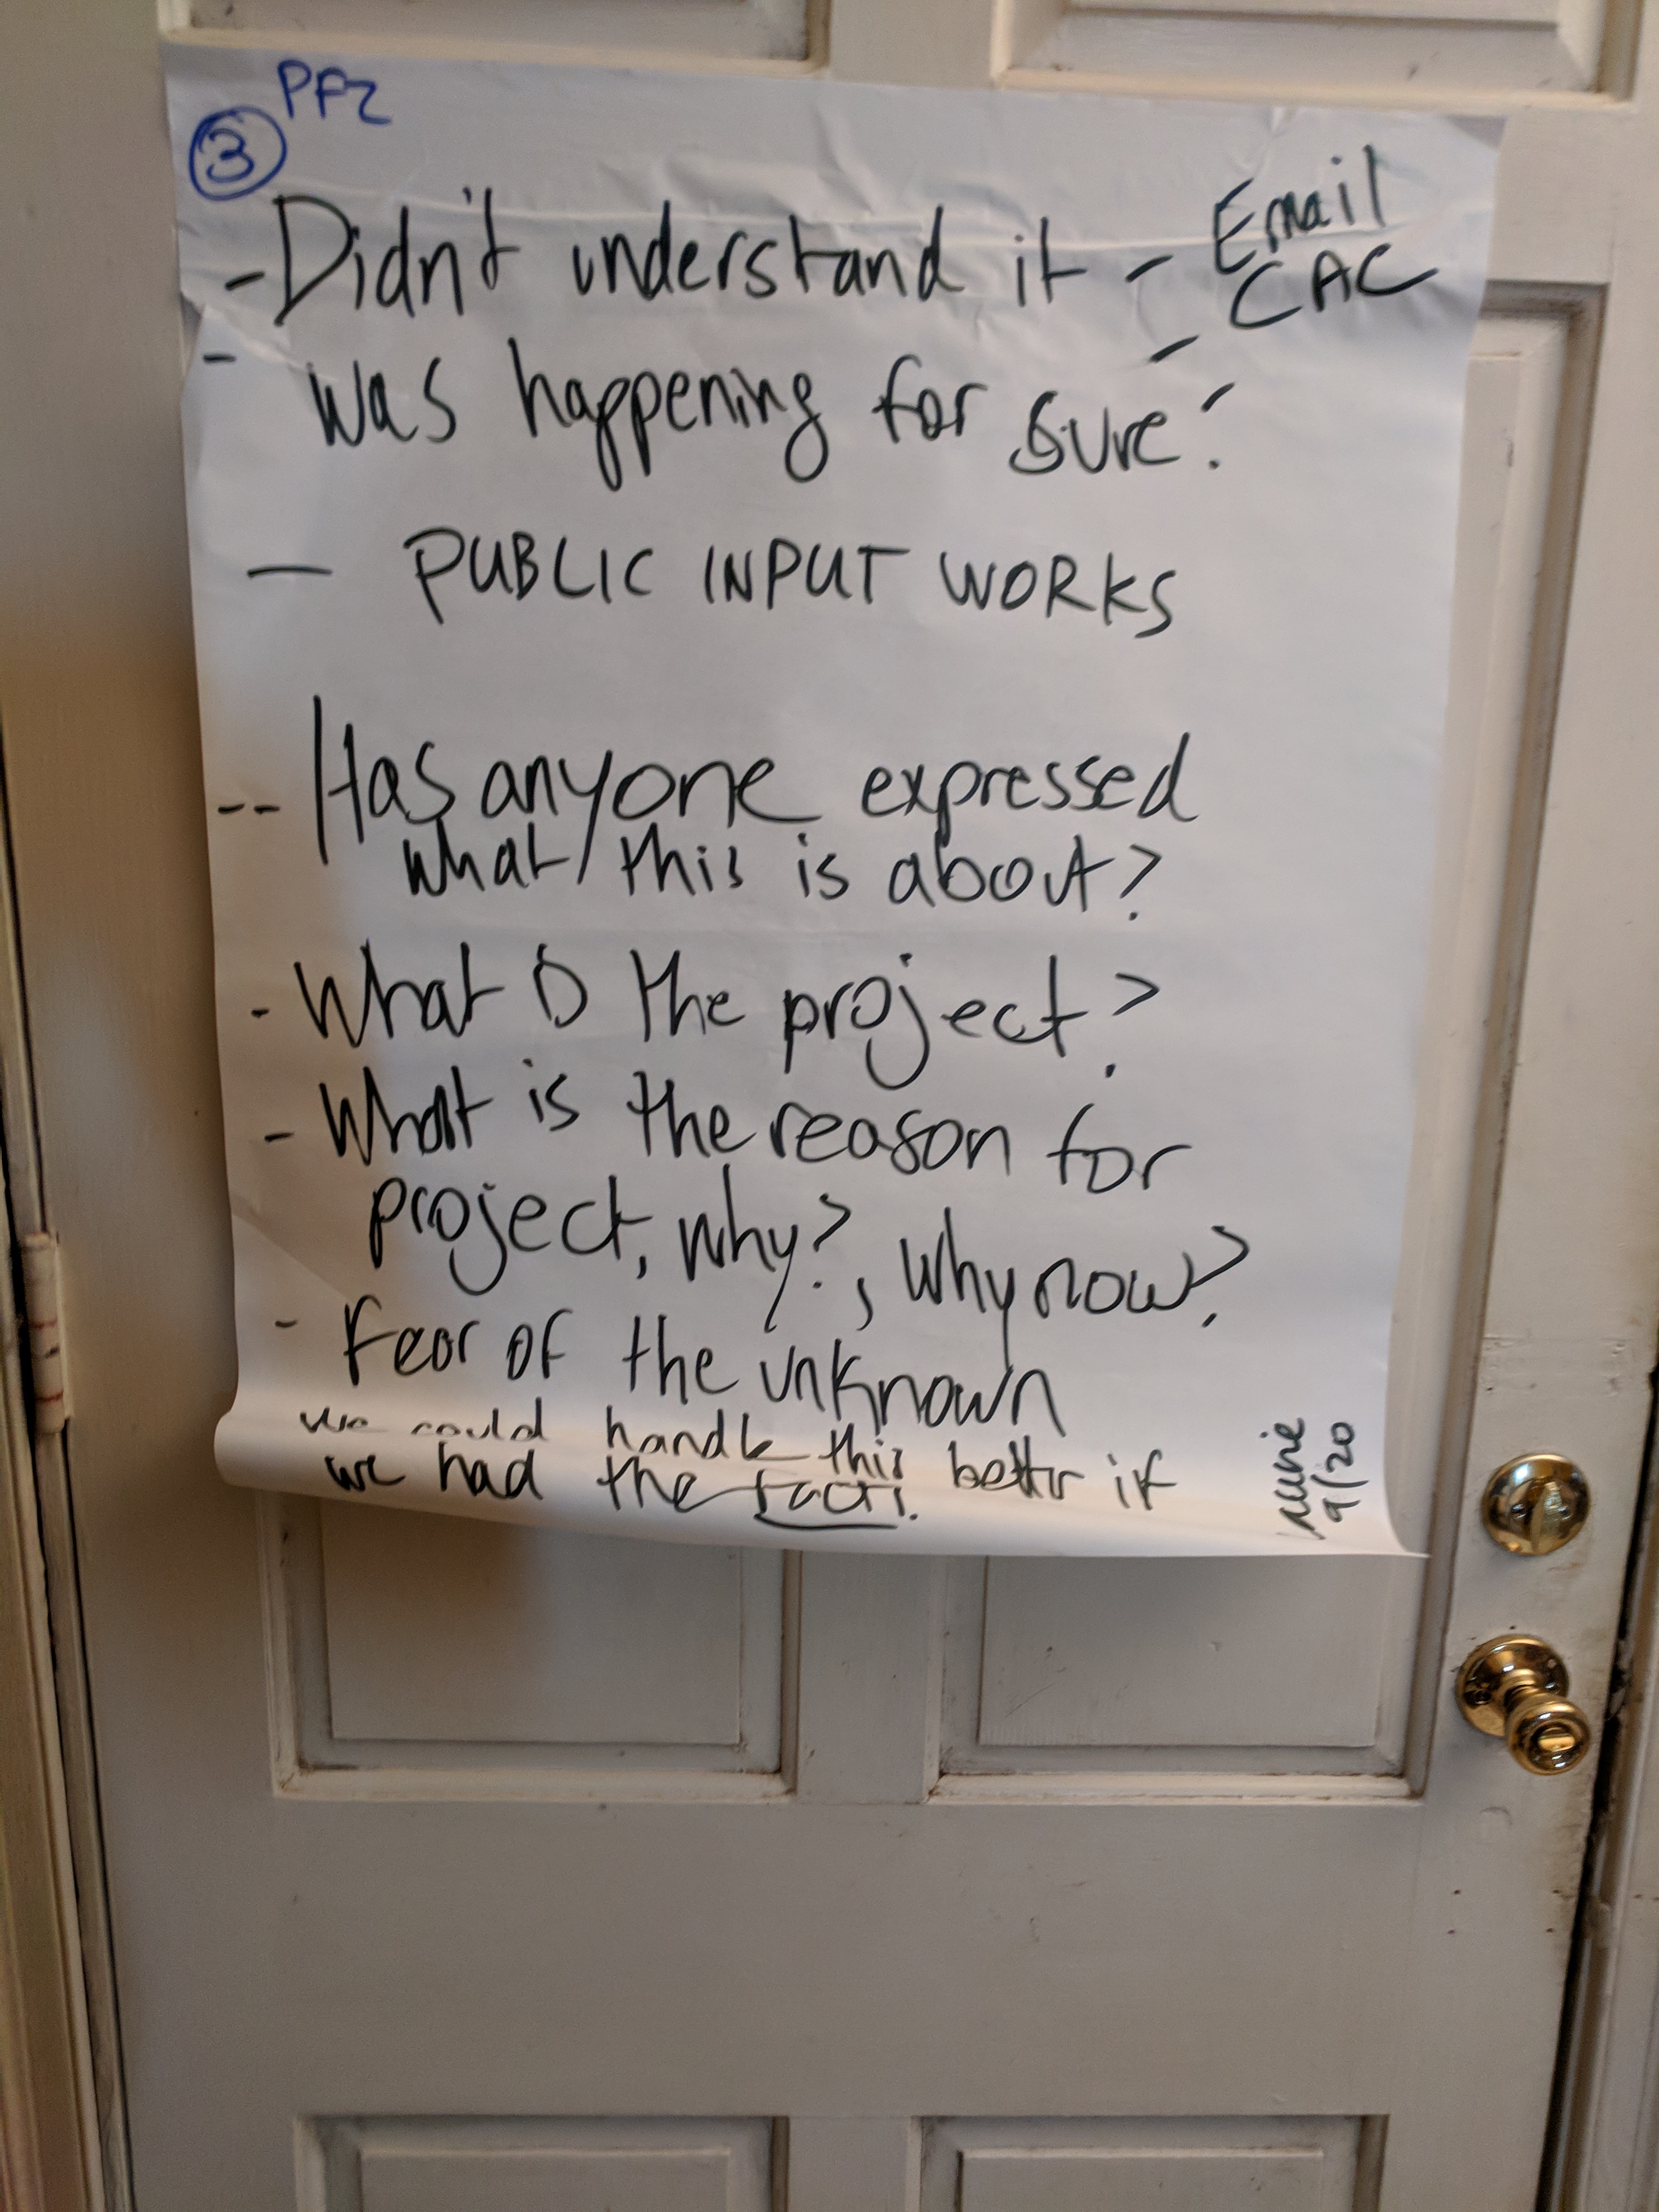 ③ PF2
- Didn't understand it - Email
CAC
- was happening for sure?
— PUBLIC INPUT WORKS
-- Has anyone expressed
what this is about?
- What is the project?
- What is the reason for
project, why?, why now?
- Fear of the unknown
we could handle this better if
we had the facts.
9/20